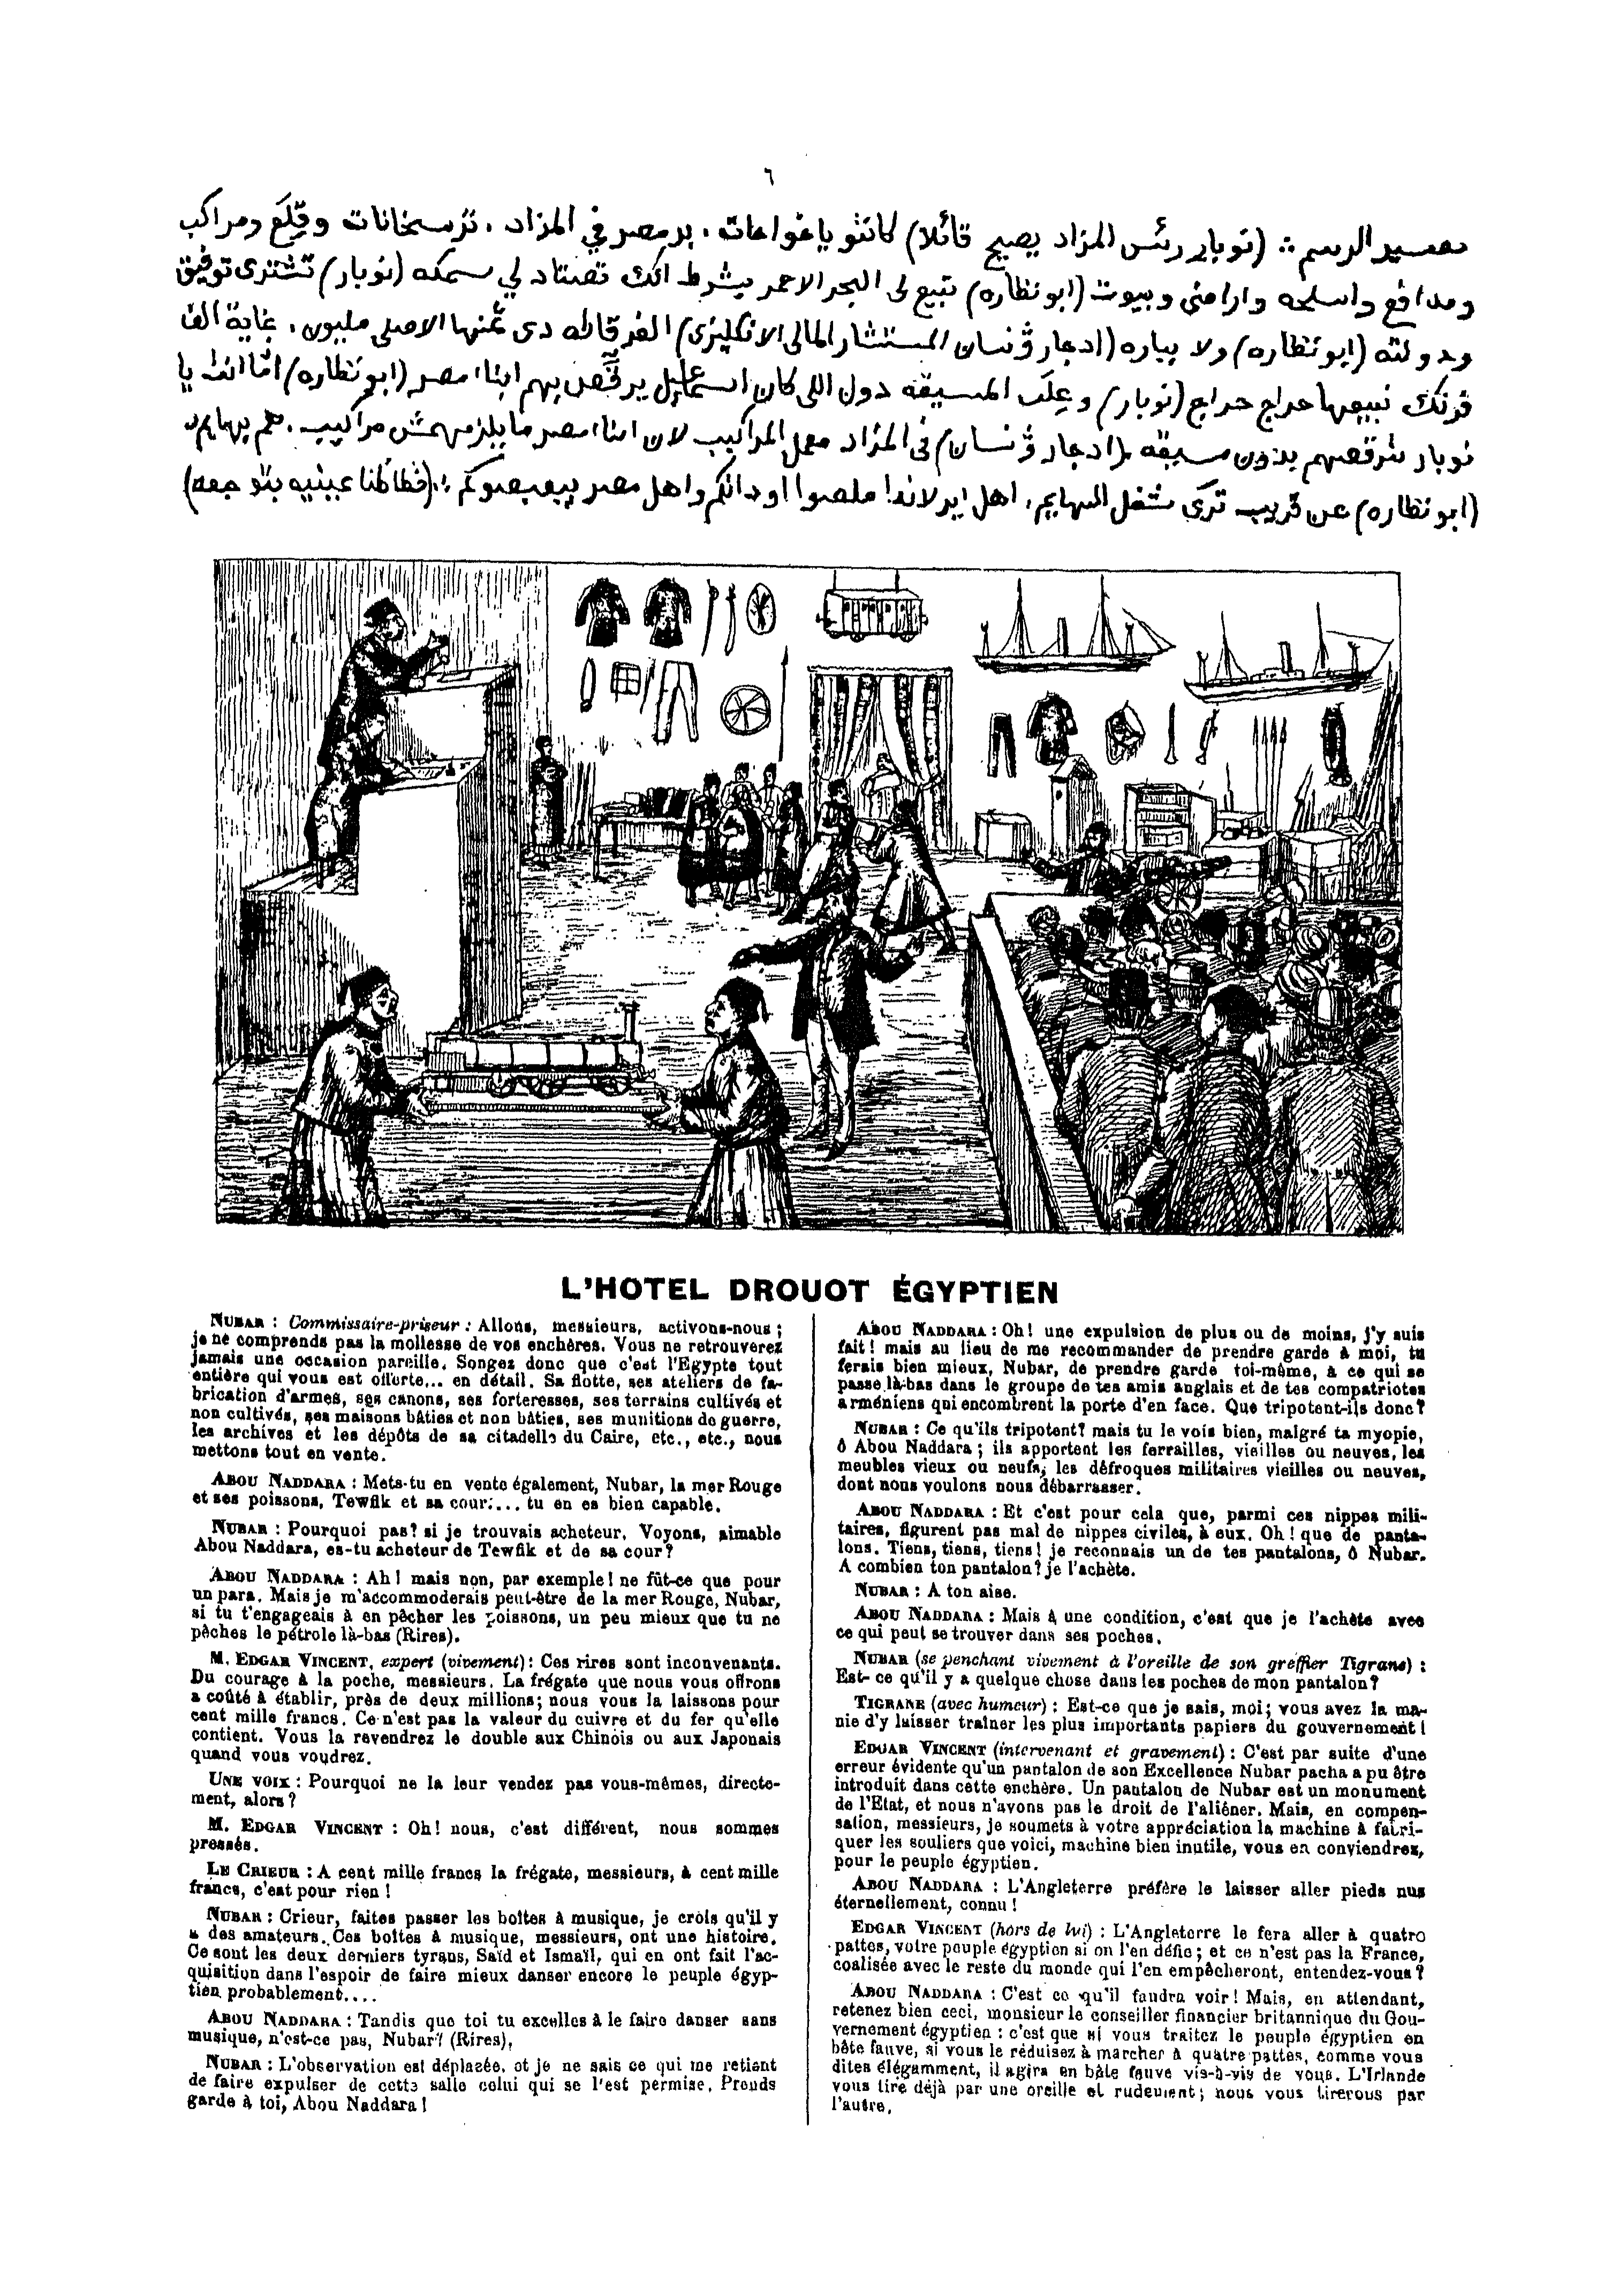 ٦
تفسير الرسم ؞ (نوبار رئس المزاد يصيح قائلا) كانتو يا خواجات . بر مصر في المزاد . ترسخانات وقلع ومراكب
ومدافع واسلحه واراضى وبيوت (ابو نظاره) تبيع لى البحر الاحمر بشرط انك تصتاد لي سمكه (نوبار) تشترى توفيق
ودولته (ابو نظاره) ولا بباره (ادجار ڤنسان المستشار المالى الانكليزى) الفرقاطه دى ثمنها الاصلى مليون . غاية الف
فرنك نبيعها حراج حراج (نوبار) وعلب المسيقه دول اللى كان اسماعيل يرقص بهم ابناء مصر (ابو نظاره) امّا انت يا
نوبار بترقصهم بدون مسيقه (ادجار ڤنسان) فى المزاد معمل المراكيب لان ابناء مصر ما يلزمهمش مراكيب . هم بهايم
(ابو نظاره) عن قريب ترى شغل البهايم . اهل ايرلاندا ملصوا اودانكم واهل مصر
L'HOTEL DROUOT ÉGYPTIEN
NUBAR : Commissaire-priseur : Allons, messieurs, activons-nous ;
je ne comprends pas la mollesse de vos enchères. Vous ne retrouverez
jamais une occasion pareille. Songez donc que c'est l'Egypte tout
entière qui vous est offerte... en détail. Sa flotte, ses ateliers de fa-
brication d'armes, ses canons, ses forteresses, ses terrains cultivés et
non cultivés, ses maisons bâties et non bâties, ses munitions de guerre,
les archives et les dépôts de sa citadelle du Caire, etc., etc., nous
mettons tout en vente.
ABOU NADDARA : Mets-tu en vente également, Nubar, la mer Rouge
et ses poissons, Tewfik et sa cour:... tu en es bien capable.
NUBAR : Pourquoi pas? si je trouvais acheteur. Voyons, aimable
Abou Naddara, es-tu acheteur de Tewfik et de sa cour?
ABOU NADDARA : Ah! mais non, par exemple! ne fût-ce que pour
un para. Mais je m'accommoderais peut-être de la mer Rouge, Nubar,
si tu t'engageais à en pêcher les poissons, un peu mieux que tu ne
pêches le pétrole là-bas (Rires).
M. EDGAR VINCENT, expert (vivement) : Ces rires sont inconvenants.
Du courage à la poche, messieurs. La frégate que nous vous offrons
a coûté à établir, près de deux millions; nous vous la laissons pour
cent mille francs. Ce n'est pas la valeur du cuivre et du fer qu'elle
contient. Vous la revendrez le double aux Chinois ou aux Japonais
quand vous voudrez.
UNE VOIX : Pourquoi ne la leur vendez pas vous-mêmes, directe-
ment, alors?
M. EDGAR VINCENT : Oh! nous, c'est différent, nous sommes
pressés.
LE CRIEUR : A cent mille francs la frégate, messieurs, à cent mille
francs, c'est pour rien !
NUBAR : Crieur, faites passer les boîtes à musique, je crois qu'il y
a des amateurs. Ces boîtes à musique, messieurs, ont une histoire.
Ce sont les deux derniers tyrans, Saïd et Ismaïl, qui en ont fait l'ac-
quisition dans l'espoir de faire mieux danser encore le peuple égyp-
tien probablement....
ABOU NADDARA : Tandis que toi tu excelles à le faire danser sans
musique, n'est-ce pas, Nubar? (Rires).
NUBAR : L'observation est déplacée, et je ne sais ce qui me retient
de faire expulser de cette salle celui qui se l'est permise. Prends
garde à toi, Abou Naddara !
ABOU NADDARA : Oh! une expulsion de plus ou de moins, j'y suis
fait! mais au lieu de me recommander de prendre garde à moi, tu
ferais bien mieux, Nubar, de prendre garde toi-même, à ce qui se
passe là-bas dans le groupe de tes amis anglais et de tes compatriotes
arméniens qui encombrent la porte d'en face. Que tripotent-ils donc?
NUBAR : Ce qu'ils tripotent? mais tu le vois bien, malgré ta myopie,
ô Abou Naddara ; ils apportent les ferrailles, vieilles ou neuves, les
meubles vieux ou neufs, les défroques militaires vieilles ou neuves,
dont nous voulons nous débarrasser.
ABOU NADDARA : Et c'est pour cela que, parmi ces nippes mili-
taires, figurent pas mal de nippes civiles, à eux. Oh ! que de panta-
lons. Tiens, tiens, tiens! je reconnais un de tes pantalons, ô Nubar.
A combien ton pantalon? je l'achète.
NUBAR : A ton aise.
ABOU NADDARA : Mais à une condition, c'est que je l'achète avec
ce qui peut se trouver dans ses poches.
NUBAR (se penchant vivement à l'oreille de son greffier Tigrane) :
Est-ce qu'il y a quelque chose dans les poches de mon pantalon?
TIGRANE (avec humeur) : Est-ce que je sais, moi; vous avez la ma-
nie d'y laisser traîner les plus importants papiers du gouvernement !
EDGAR VINCENT (intervenant et gravement) : C'est par suite d'une
erreur évidente qu'un pantalon de son Excellence Nubar pacha a pu être
introduit dans cette enchère. Un pantalon de Nubar est un monument
de l'Etat, et nous n'avons pas le droit de l'aliéner. Mais, en compen-
sation, messieurs, je soumets à votre appréciation la machine à fabri-
quer les souliers que voici, machine bien inutile, vous en conviendrez,
pour le peuple égyptien.
ABOU NADDARA : L'Angleterre préfère le laisser aller pieds nus
éternellement, connu !
EDGAR VINCENT (hors de lui) : L'Angleterre le fera aller à quatre
pattes, votre peuple égyptien si on l'en défie ; et ce n'est pas la France,
coalisée avec le reste du monde qui l'en empêcheront, entendez-vous?
ABOU NADDARA : C'est ce qu'il faudra voir ! Mais, en attendant,
retenez bien ceci, monsieur le conseiller financier britannique du Gou-
vernement égyptien : c'est que si vous traitez le peuple égyptien en
bête fauve, si vous le réduisez à marcher à quatre pattes, comme vous
dites élégamment, il agira en bête fauve vis-à-vis de vous. L'Irlande
vous tire déjà par une oreille et rudement ; nous vous tirerons par
l'autre.